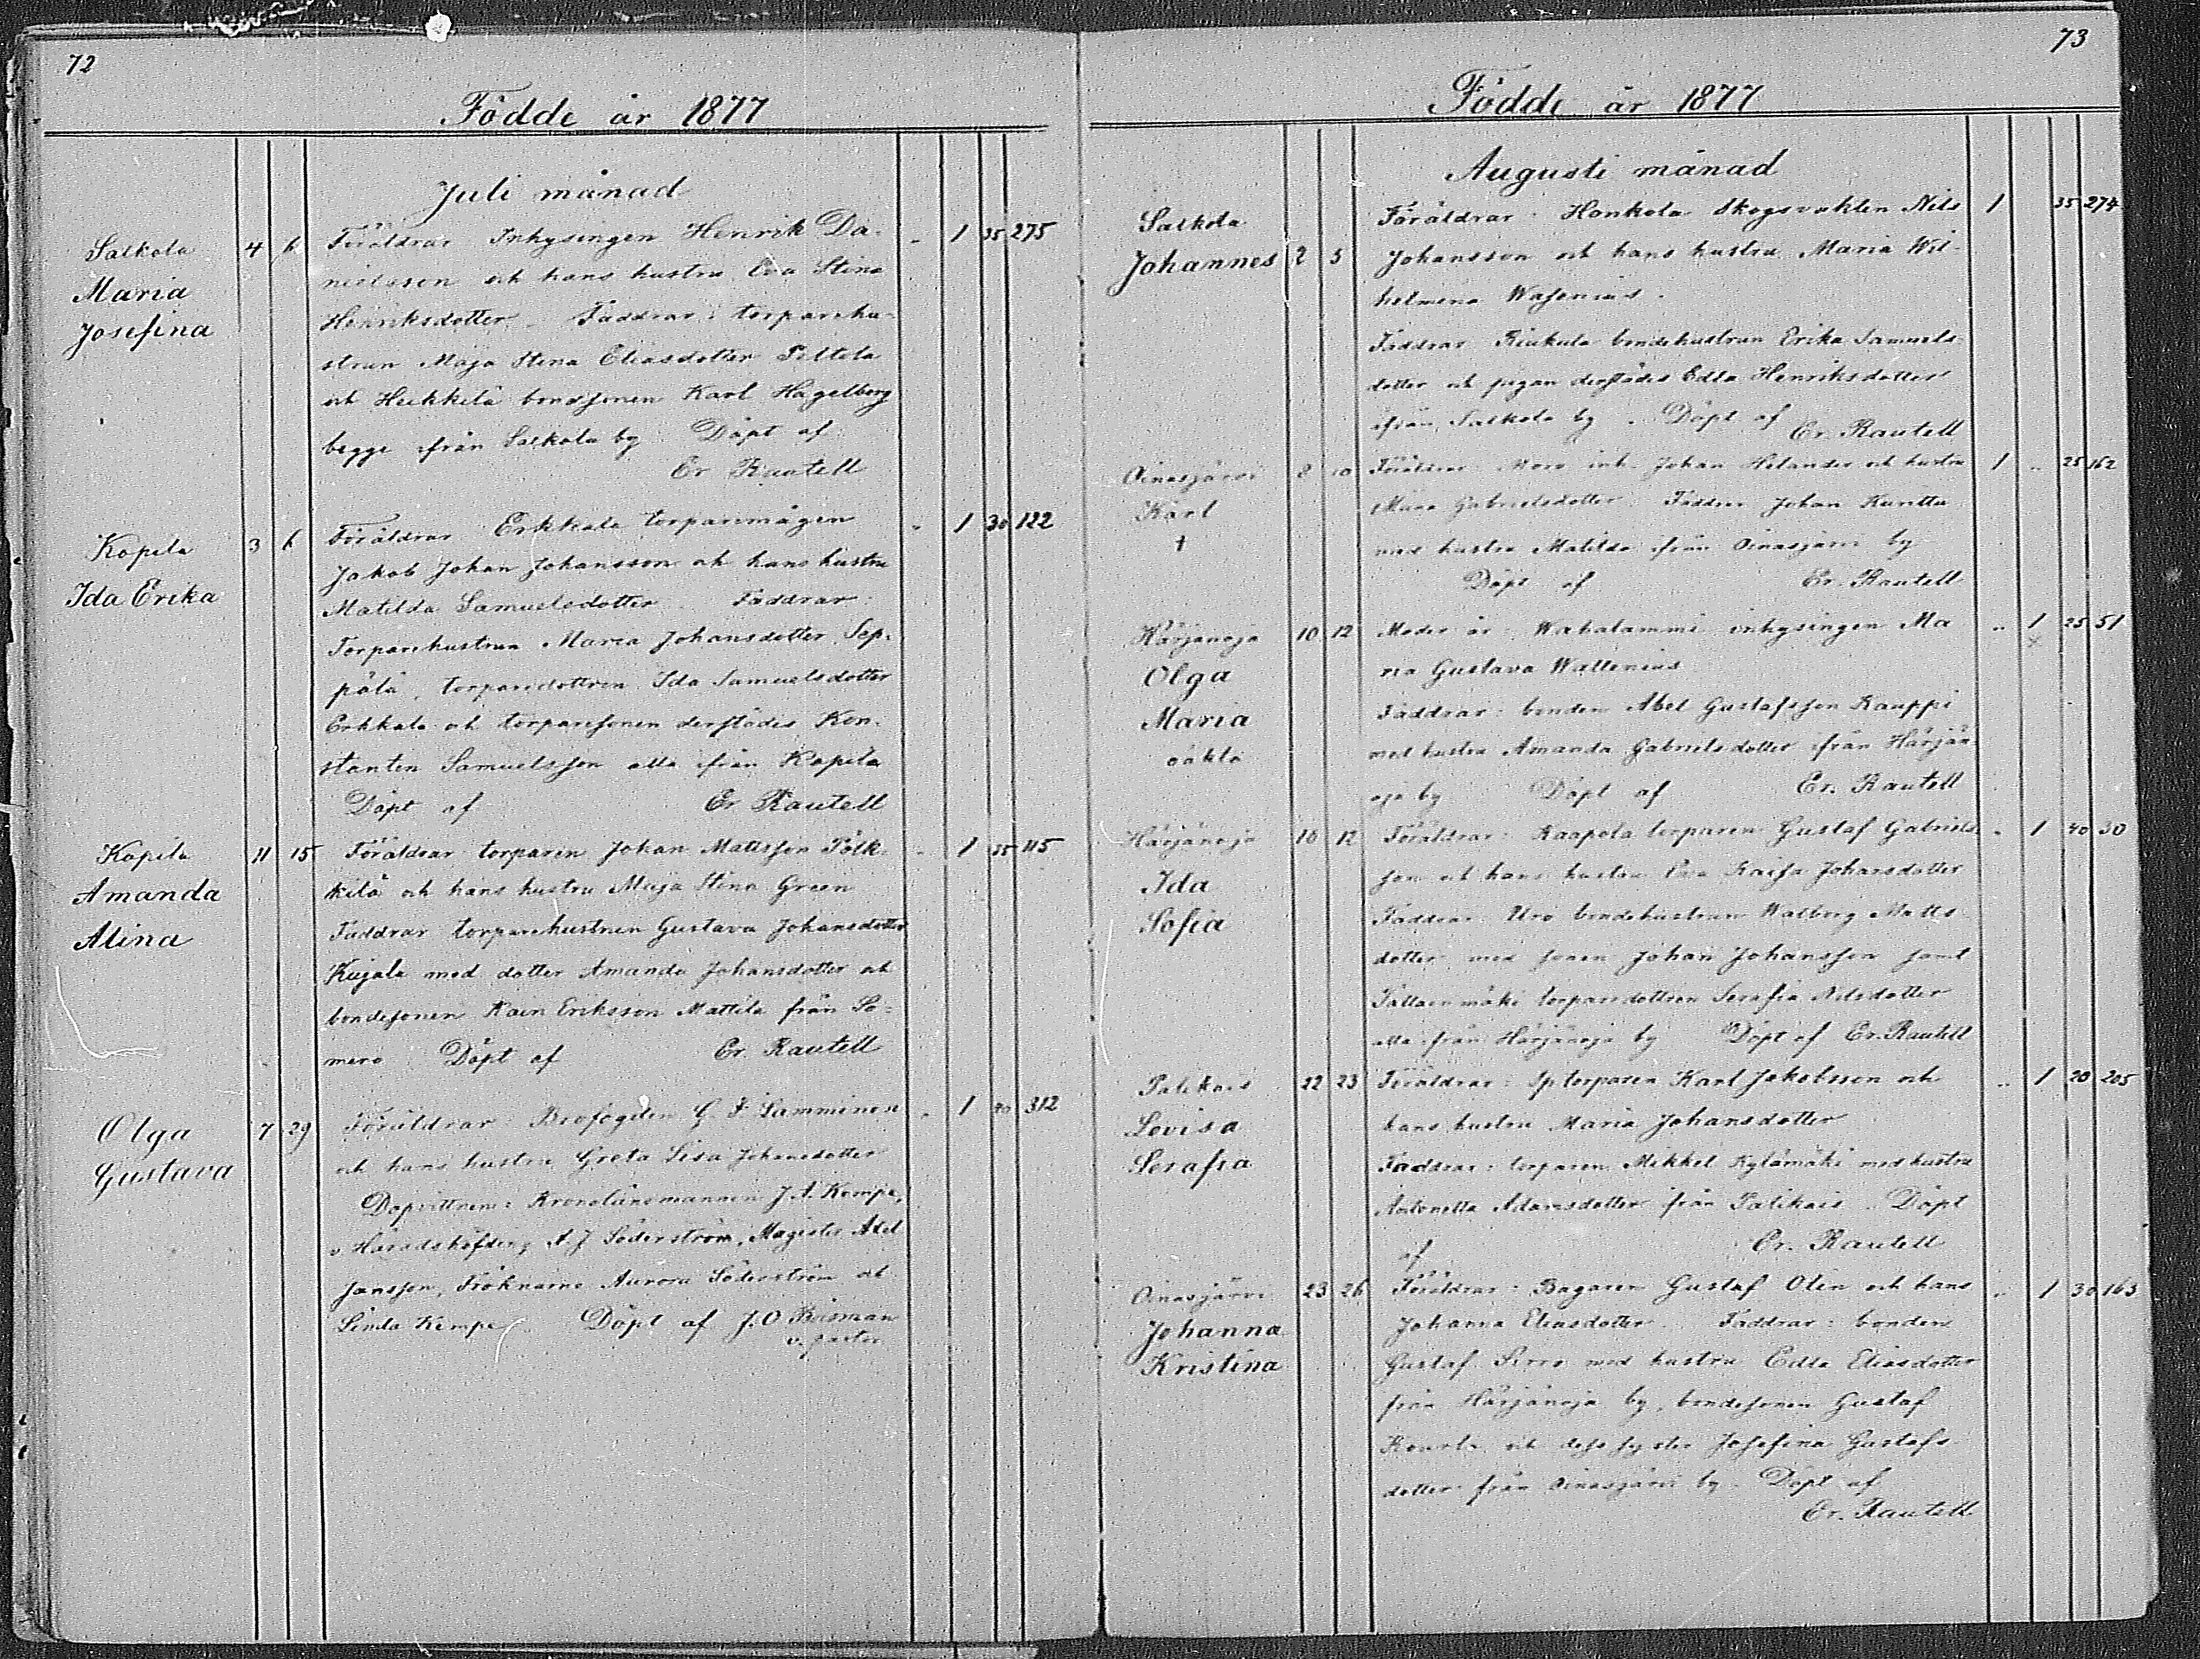 72
Födde år 1877
Juli månad
Salkola 4 6 Föräldrar Inhysingen Henrik Da- " 1 35 275
Maria nielsson och hans hustru Eva Stina
Josefina Henriksdotter. Faddrar: torparehu-
strun Maja Stina Eliasdotter Peltola
och Heikkilä bondsonen Karl Hagelberg
begge ifrån Salkola by Döpt af
Er Rautell
Kopila 3 6 Föräldrar Erkkala torparemågen " 1 30 122
Ida Erika Jakob Johan Johansson och hans hustru
Matilda Samuelsdotter. Faddrar:
Torparehustrun Maria Johansdotter Sep-
pälä, torparedottren Ida Samuelsdotter
Erkkala och torparesonen derstädes Kon-
stantin Samuelsson alla ifrån Kopila
Döpt af Er Rautell
Kopila 11 15 Föräldrar torparen Johan Mattsson Pölk- " 1 35 115
Amanda kilä och hans hustru Maja Stina Green
Alina Faddrar torparehustrun Gustava Johansdotter
Kujala med dotter Amanda Johansdotter och
bondesonen Kain Eriksson Mattila från So-
mero Döpt af Er. Rautell
Olga 7 29 Föräldrar Brofogden G. F. Samminen " 1 40 312
Gustava och hans hustru Greta Lisa Johansdotter
Dopvittnen: Kronolänsmannen J. A. Kempe,
v. Häradshöfding A. J Söderström, Magister Axel
Jansson, Fröknarne Aurora Söderström och
Linda Kempe. Döpt af J. O Boisman
v. pastor
73
Födde år 1877
Augusti månad
Salkola Föräldrar: Honkola Skogsvakten Nils 1 35 274
Johannes 2 5 Johansson och hans hustru Maria Wil-
helmina Wasenius.
Faddrar Riukula bondehustrun Erika Samuels-
dotter och pigan derstädes Edla Henriksdotter
ifrån Salkola by. Döpt af
Er. Rautell
Oinasjärvi 8 10 Föräldrar: Moro inh. Johan Helander och hustru 1 " 25 162
Karl Maria Gabrielsdotter Faddrar Johan Kunttu
† med hustru Matilda ifrån Oinasjärvi by
Döpt af Er. Rautell
Härjänoja 10 12 Moder är: Wahalammi inhysingen Ma " 1 25 51
Olga ria Gustava Wallenius ×
Maria Faddrar: bonden Abel Gustafsson Kauppi
oäkta med hustru Amanda Gabrielsdotter ifrån Härjän-
oja by Döpt af Er. Rautell
Härjänoja 10 12 Föräldrar: Raapola torparen Gustaf Gabriels- " 1 40 30
Ida son och hans hustru Eva Kaisa Johansdotter
Sofia Faddrar Uro bondehustrun Walborg Matts-
dotter med sonen Johan Johansson samt
mäki torparedottren Serafia Nilsdotter
alla från Härjänoja by Döpt af Er. Rautell
Palikais 22 23 Föräldrar: Sptorparen Karl Jakobsson och " 1 20 205
Lovisa hans hustru Maria Johansdotter
Serafia Faddrar: torparen Mikkel Kylämäki med hustru
Antonetta Adamsdotter från Palikais. Döpt
af Er. Rautell
Oinasjärvi 23 26 Föräldrar: Bagaren Gustaf Olin och hans " 1 30 163
Johanna Johanna Eliasdotter. Faddrar: bonden
Kristina Gustaf Sirro med hustru Edla Eliasdotter
från Härjänoja by, bondesonen Gustaf
och dess syster Josefina Gustafs-
dotter från Oinasjärvi by. Döpt af
Er. Rautell